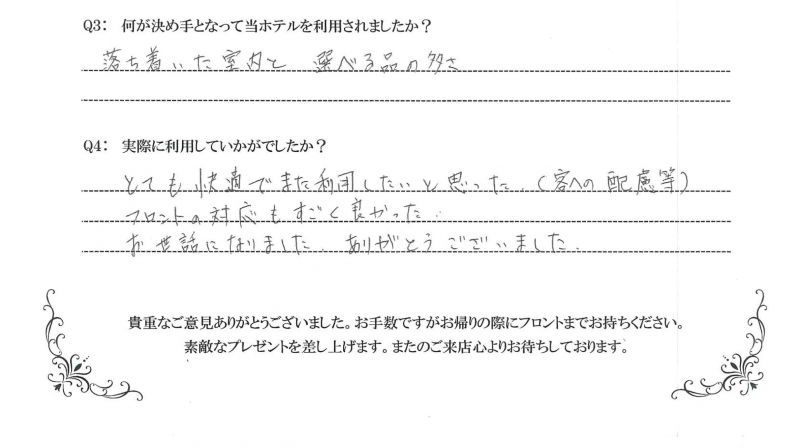 Q3: 何が決め手となって当ホテルを利用されましたか？
落ち着いた室内と 選べる品の多さ
Q4: 実際に利用していかがでしたか？
とても快適でまた利用したいと思った。(客への配慮等)
フロントの対応もすごく良かった。
お世話になりました。ありがとうございました。
貴重なご意見ありがとうございました。お手数ですがお帰りの際にフロントまでお持ちください。
素敵なプレゼントを差し上げます。またのご来店心よりお待ちしております。